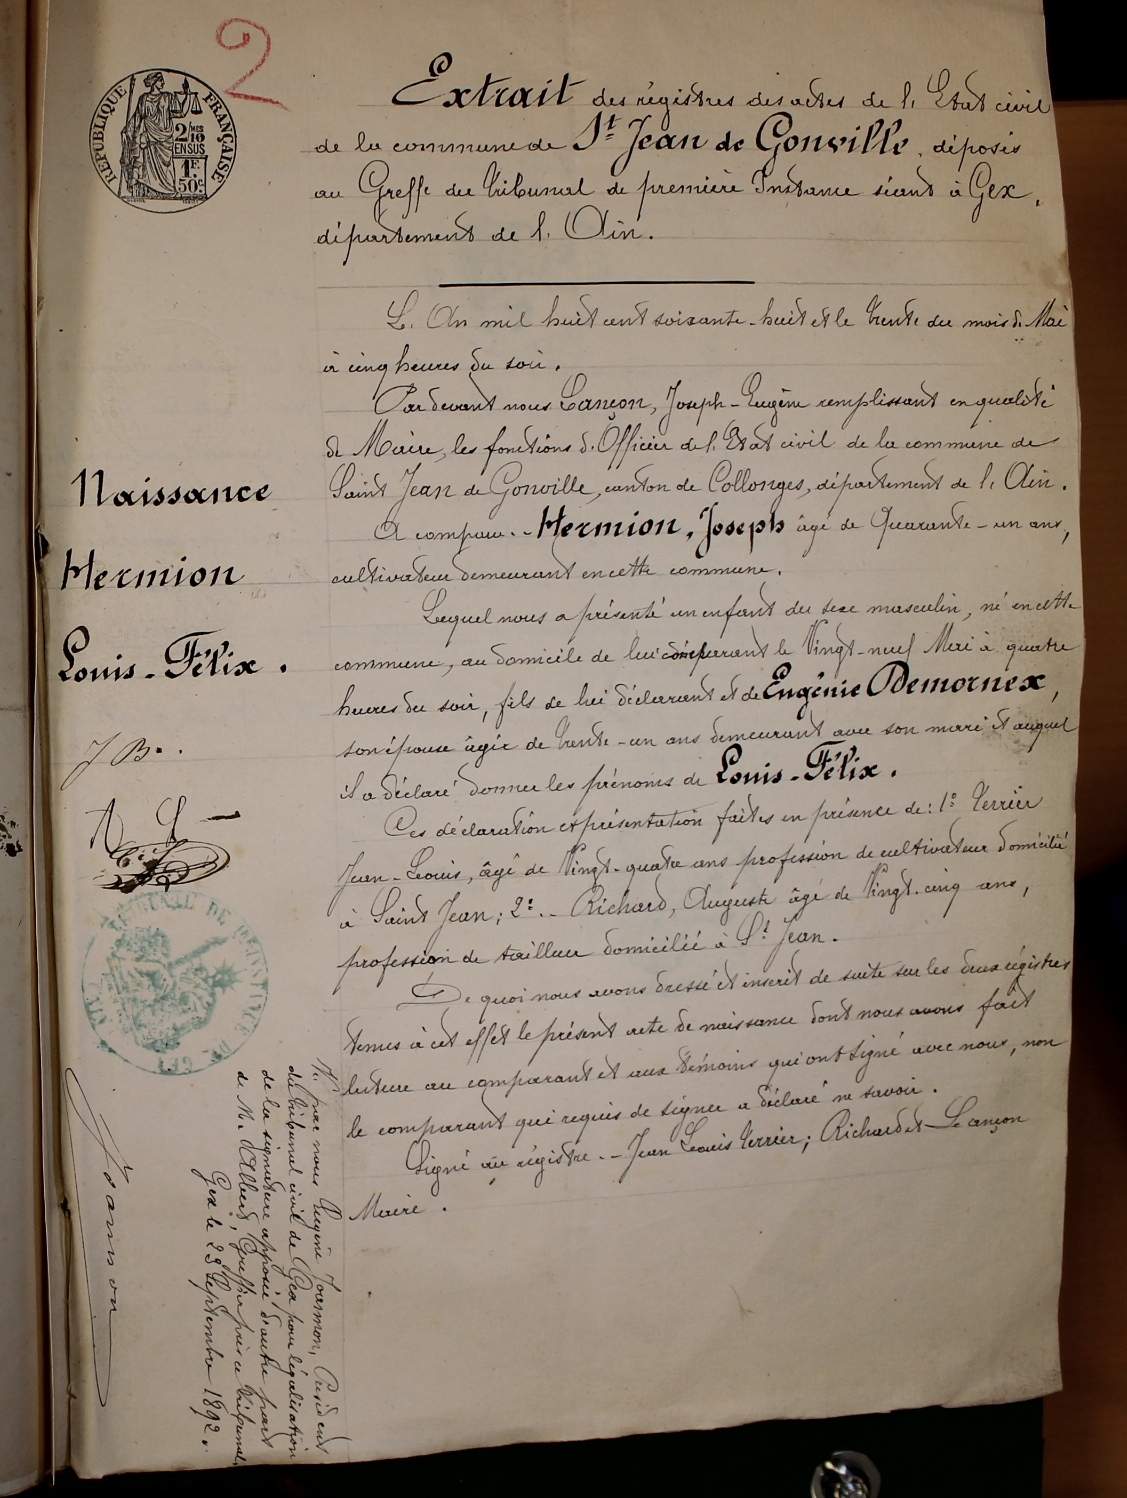 2
RÉPUBLIQUE FRANÇAISE
2/10 MES
EN SUS
1F.
50c
Extrait des régistres des actes de l'Etat civil
de la commune de St Jean de Gonville, déposés
au Greffe du Tribunal de première Instance séant à Gex,
département de l'Ain.
L'An mil huit cent soixante-huit et le trente du mois de Mai
à cinq heures du soir.
Par devant nous Lançon, Joseph-Eugène remplissant en qualité
de Maire, les fonctions d'Officier de l'Etat civil de la commune de
Saint Jean de Gonville, canton de Collonges, département de l'Ain.
A comparu.- Hermion, Joseph âgé de Quarante-un ans,
cultivateur demeurant en cette commune.
Lequel nous a présenté un enfant du sexe masculin, né en cette
commune, au domicile de lui comparant le Vingt-neuf Mai à quatre
heures du soir, fils de lui déclarant et de Eugénie Demornex,
son épouse âgée de trente-un ans demeurant avec son mari et auquel
il a déclaré donner les prénoms de Louis-Félix.
Ces déclaration et présentation faites en présence de: 1° Verrier
Jean-Louis, âgé de Vingt-quatre ans profession de cultivateur domicilié
à Saint Jean; 2°.- Richard, Auguste âgé de Vingt-cinq ans,
profession de tailleur domicilié à St Jean.
De quoi nous avons dressé et inscrit de suite sur les deux régistres
tenus à cet effet le présent acte de naissance dont nous avons fait
lecture au comparant et aux témoins qui ont signé avec nous, non
le comparant qui requis de signer a déclaré ne savoir.
Signé au régistre.- Jean Louis Verrier; Richard et Lançon
Maire.
Naissance
Hermion
Louis-Félix.
J B.
TRIBUNAL DE 1RE INSTANCE DE GEX
Vu par nous Eugène Joannon, Président
du tribunal civil de Gex pour légalisation
de la signature apposée d'autre part
de M. Albert, Greffier près ce tribunal.
Gex le 23 Septembre 1892.
Joannon